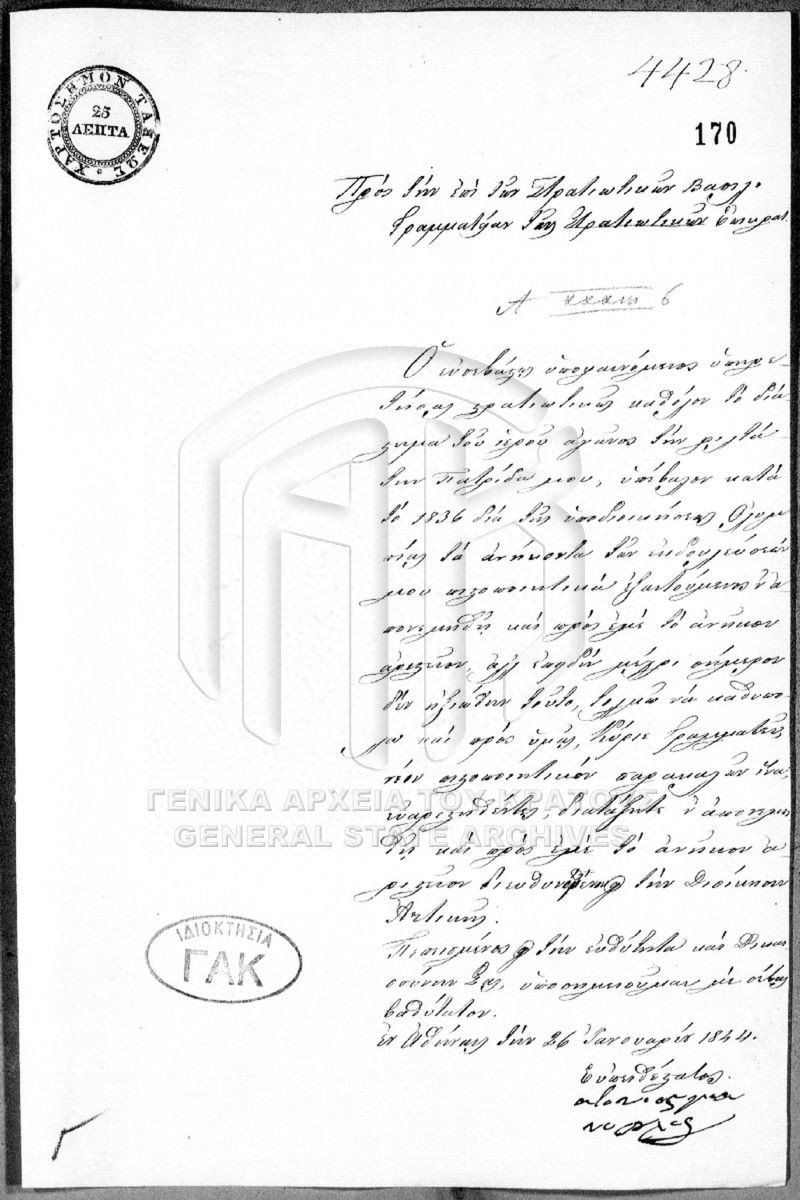 4428.
ΧΑΡΤΟΣΗΜΟΝ ΤΑΞΕΩΣ
25
ΛΕΠΤΑ
170
Πρὸς τὴν ἐπὶ τῶν Στρατιωτικῶν Βασιλ.
Γραμματείαν τῆς Στρατιωτικῶν Ἐπικρατ.
Ὁ εὐσεβάστως ὑποφαινόμενος ὑπηρε-
τήσας στρατιωτικῶς καθόλον τὸ διά-
στημα τοῦ ἱεροῦ ἀγῶνος τὴν φιλτά-
την Πατρίδα μου, ὑπέβαλον κατὰ
τὸ 1836 διὰ τῆς ὑποδιοικήσεως Ὀλυμ
πίας τὰ ἀνήκοντα τῶν ἐκδουλεύσεών
μου πιστοποιητικὰ ἐξαιτούμενος ν' ἀ
πονεμηθῇ καὶ πρὸς ἐμὲ τὸ ἀνῆκον
ἀριστεῖον, ἀλλ' ἐπειδὴ μέχρι σήμερον
δὲν ἠξιώθην τούτου, τολμῶ νὰ καθυπο
βάλω καὶ πρὸς ὑμᾶς, Κύριε Γραμματεῦ,
νέον πιστοποιητικὸν παρακαλῶν ἵνα,
εὐαρεστηθέντες, διατάξητε ν' ἀπονεμη
θῇ καὶ πρὸς ἐμὲ τὸ ἀνῆκον ἀ
ριστεῖον διευθυνόμενον τὴν Διοίκησιν
Ἀττικῆς.
Πεπεισμένος τὴν εὐθύτητα καὶ Δικαι
οσύνην Σας, ὑποσημειοῦμαι μὲ σέβας
βαθύτατον.
Ἐν Ἀθήναις τὴν 26 Ἰανουαρίου 1844.
Εὐπειθέστατος
ΓΕΝΙΚΑ ΑΡΧΕΙΑ ΤΟΥ ΚΡΑΤΟΥΣ
GENERAL STATE ARCHIVES
ΙΔΙΟΚΤΗΣΙΑ
ΓΑΚ